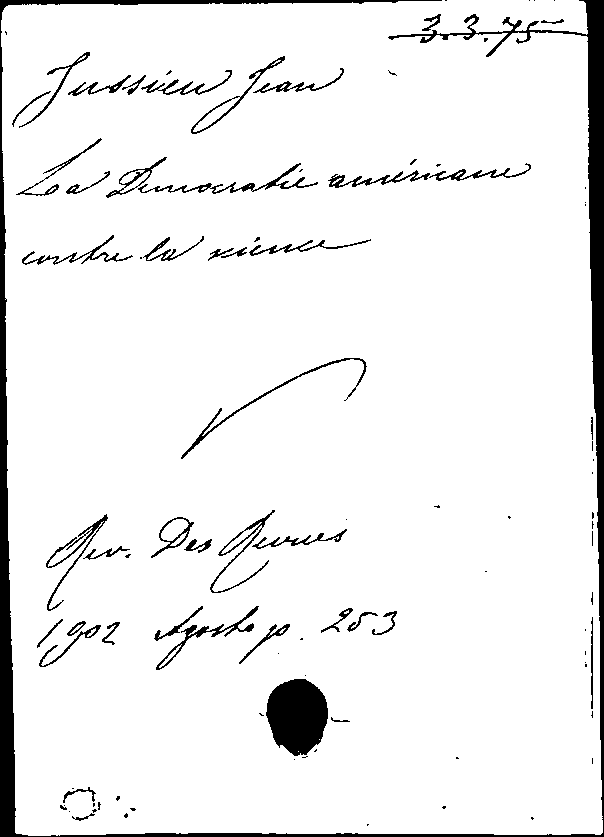 3.3.75
Jussieu Jean
La Democratie américaine
contre la science
Rev. Des Revues
1902 Agosto p. 253